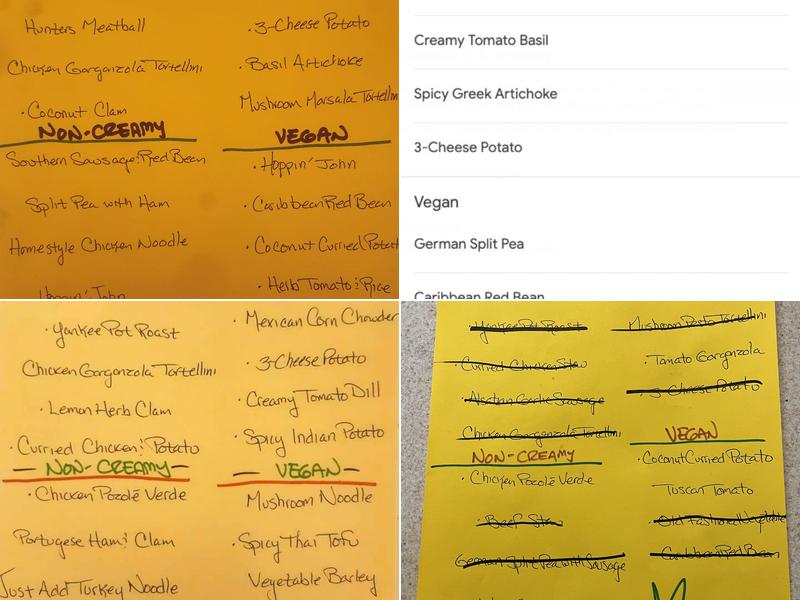 Hunters Meatball
Chicken Gorgonzola Tortellini
· Coconut Clam
NON-CREAMY
Southern Sausage & Red Bean
Split Pea with Ham
Homestyle Chicken Noodle
Hoppin' John
· 3-Cheese Potato
· Basil Artichoke
Mushroom Marsala Tortellini
VEGAN
· Hoppin' John
· Caribbean Red Bean
· Coconut Curried Potat
· Herb Tomato & Rice
Creamy Tomato Basil
Spicy Greek Artichoke
3-Cheese Potato
Vegan
German Split Pea
Caribbean Red Bean
· Yankee Pot Roast
Chicken Gorgonzola Tortellini
· Lemon Herb Clam
· Curried Chicken & Potato
— NON-CREAMY —
· Chicken Pozolé Verde
Portugese Ham & Clam
Just Add Turkey Noodle
· Mexican Corn Chowder
· 3-Cheese Potato
· Creamy Tomato Dill
· Spicy Indian Potato
— VEGAN —
Mushroom Noodle
· Spicy Thai Tofu
Vegetable Barley
Yankee Pot Roast
· Curried Chicken Stew
· Alsatian Garlic Sausage
Chicken Gorgonzola Tortellini
NON-CREAMY
· Chicken Pozolé Verde
· Beef Stew
German Split Pea with Sausage
Mushroom Pesto Tortellini
· Tomato Gorgonzola
· 3-Cheese Potato
VEGAN
· Coconut Curried Potato
Tuscan Tomato
Old Fashioned Vegetable
· Caribbean Red Bean